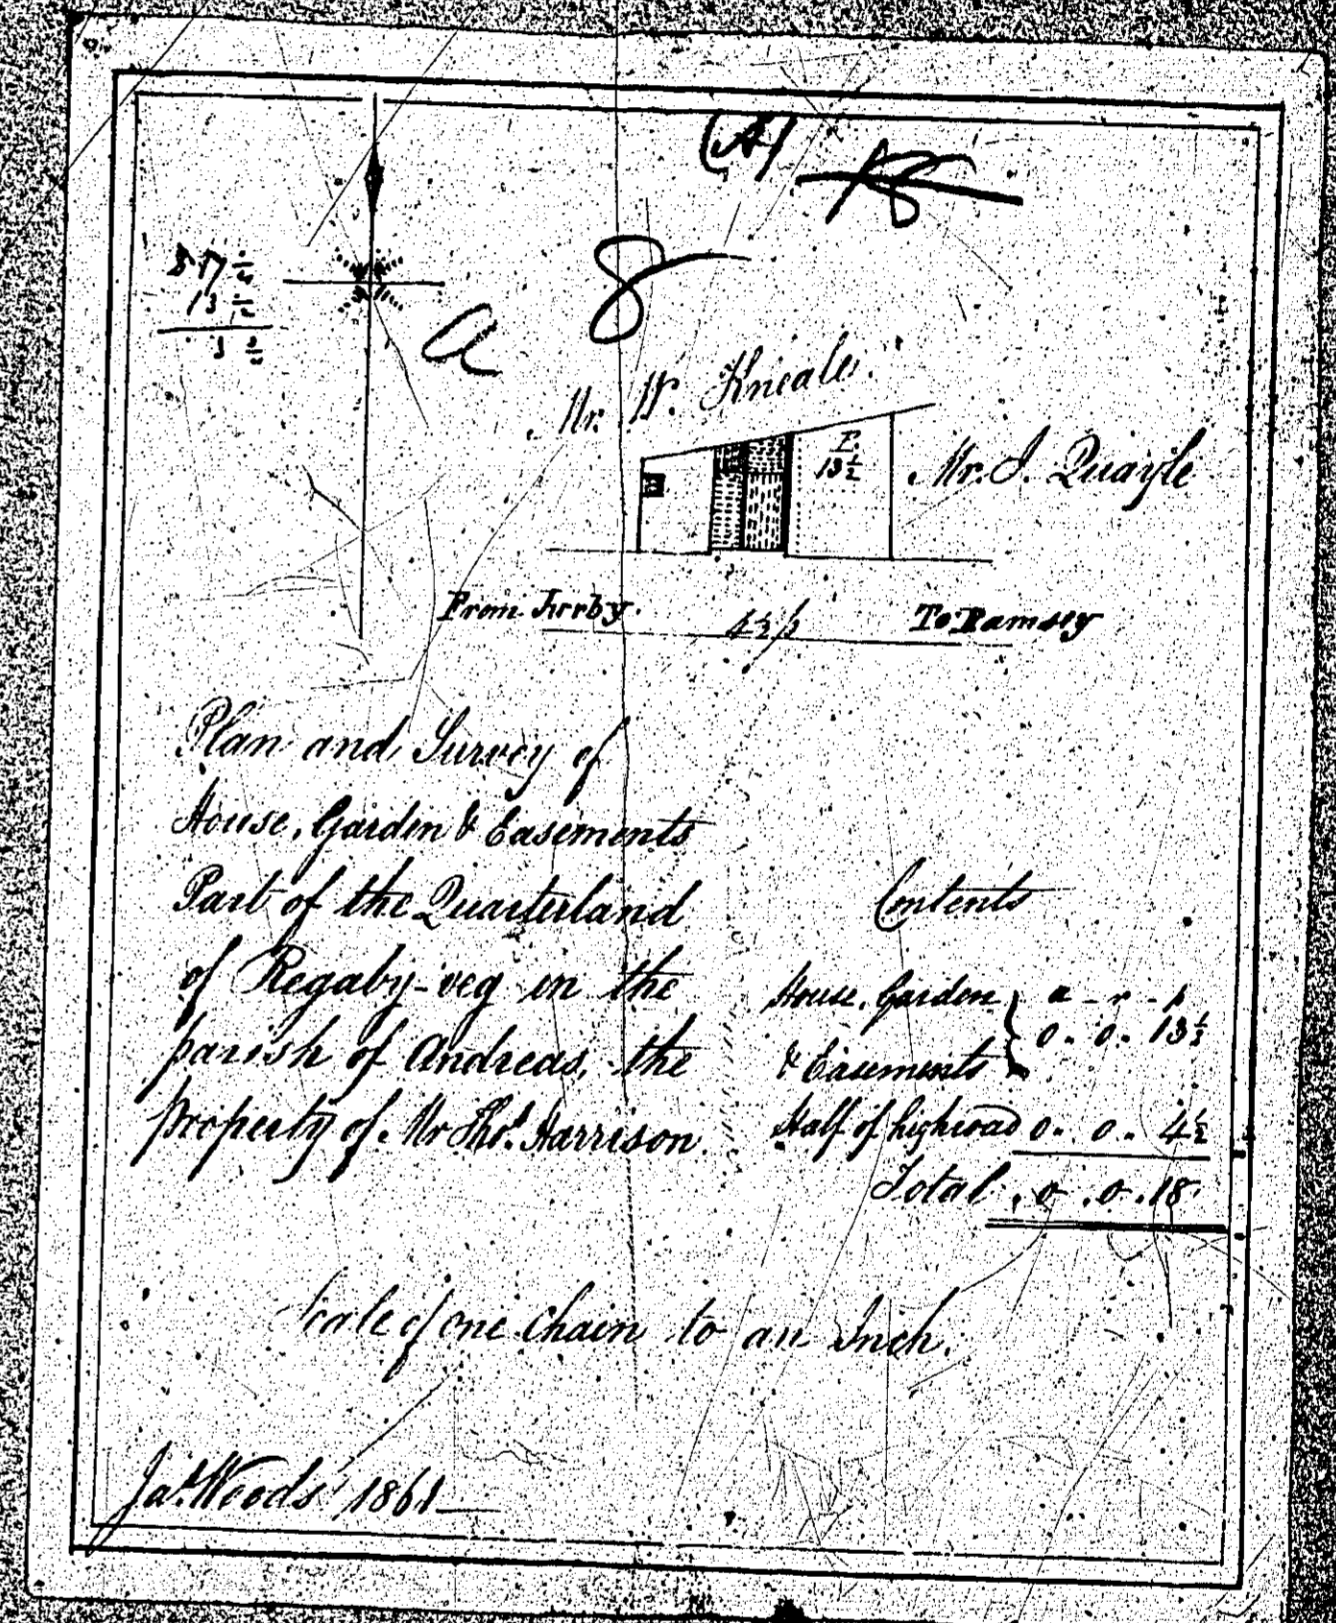 (A) 18
8
a
13 1/2
Mr. W. Kneale.
P.
13 1/2
Mr. J. Quayle
From Jurby. 4 1/2 p To Ramsey
Plan and Survey of
House, Garden & Easements
Part of the Quarterland
of Regaby-veg in the
parish of Andreas, the
property of Mr Thos. Harrison.
Contents
House, Garden } a - r - p
& Easements } 0. 0. 13 1/2
Half of highroad 0. 0. 4 1/2
Total. 0. 0. 18
Scale of one Chain to an Inch.
Jas. Woods 1861